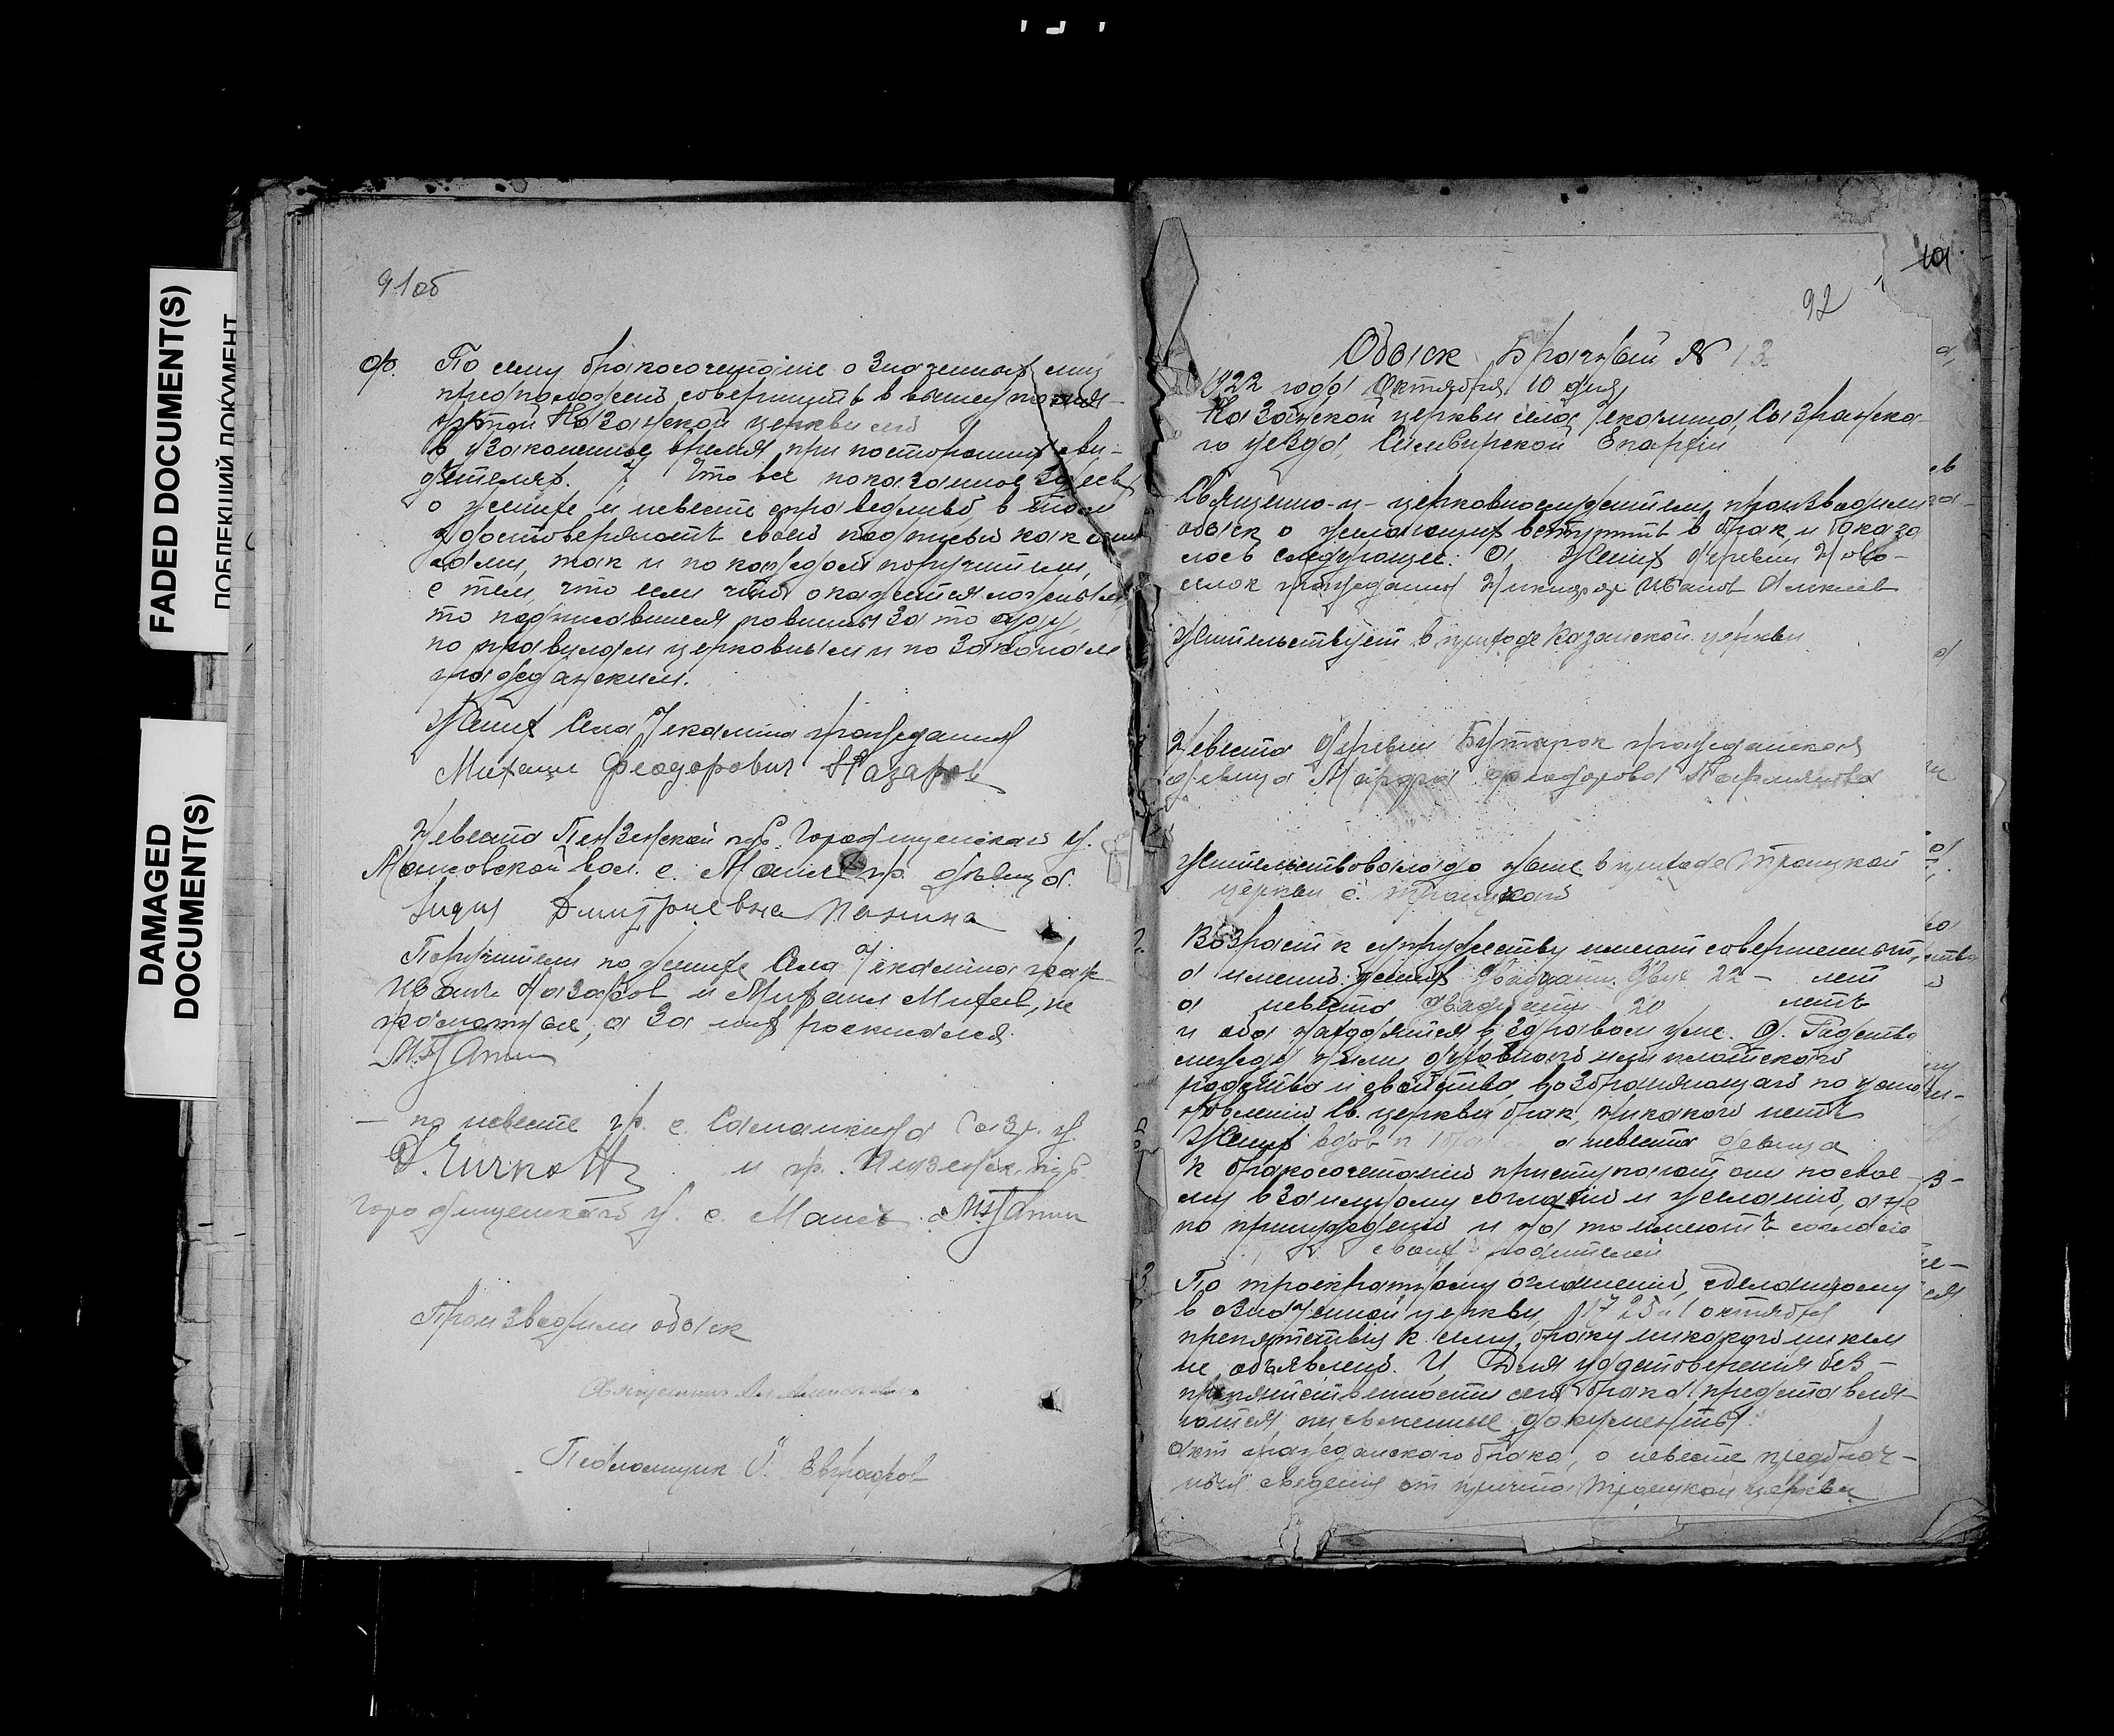 FADED DOCUMENT(S)
ПОБЛЕКШИЙ ДОКУМЕНТ
DAMAGED
DOCUMENT(S)
91об
ф. По сему бракосочетание означенных лиц
предположено совершить в вышеупомя-
нутой Казанской церкви
в узаконенное время при посторонних сви-
детелях. Что все показанное здесь
о женихе и невесте справедливо, в том
удостоверяют своей подписью как они
сами, так и по каждом поручители,
с тем, что если что окажется ложным
то подписавшиеся повинны за то суду
по правилам церковным и по законам
гражданским.
Жених Села Чекалина гражданин
Михаил Феодорович Назаров
Невеста Пензенской губ. Городищенскаго у.
Маисовской вол. с. Маис гр. девица
Лидия Дмитриевна Панина
Поручители по женихе Села Чекалина граж
Иван Назаров и Михаил Михеев, не
грамотные, а за них расписался
— по невесте гр. с. Самайкина Сызр. у.
и гр. Пензенск. губ.
Городищенскаго у. с. Маис
Производили обыск
Священник
Псаломщик
101
92
Обыск Брачный № 13.
1922 года Октября 10 дня,
Казанской церкви села Чекалина, Сызранска-
го уезда, Симбирской Епархии
Священно-и-церковнослужители производили
обыск о желающих вступить в брак, и оказа
лось следующее: 1. Жених деревни Ново-
селок гражданин Никифор Иванов Алексеев
Жительствует в приходе Казанской церкви
Невеста деревни Бутырок гражданская
девица Марфа Феодорова
Жительствовала до ныне в приходе Троицкой
церкви с. Троицкого
2. Возраст к супружеству имеют совершенный,
а именно: жених двадцати двух 22 - лет
а невеста двадцати 20 летъ
и оба находятся в здравом уме. Родства
между ними духовного или плотского
родства и свойства, возбраняющаго по уста
новлению Св. церкви брак, никакого нетъ
Жених а невеста девица
К бракосочетанию приступают они по свое-
му взаимному согласию и желанию, а не
по принуждению и на то имеют согласие
своих родителей
3. По троекратному оглашению, сделанному
в означенной церкви, 17 25 и 1 октября
препятствия к сему браку никакого никем
не объявлено. И, Для удостоверения без-
препятственности сего брака представля-
ются письменные документы:
акт гражданскаго брака, о невесте предбрач-
ныя сведения от причта Троицкой церкви